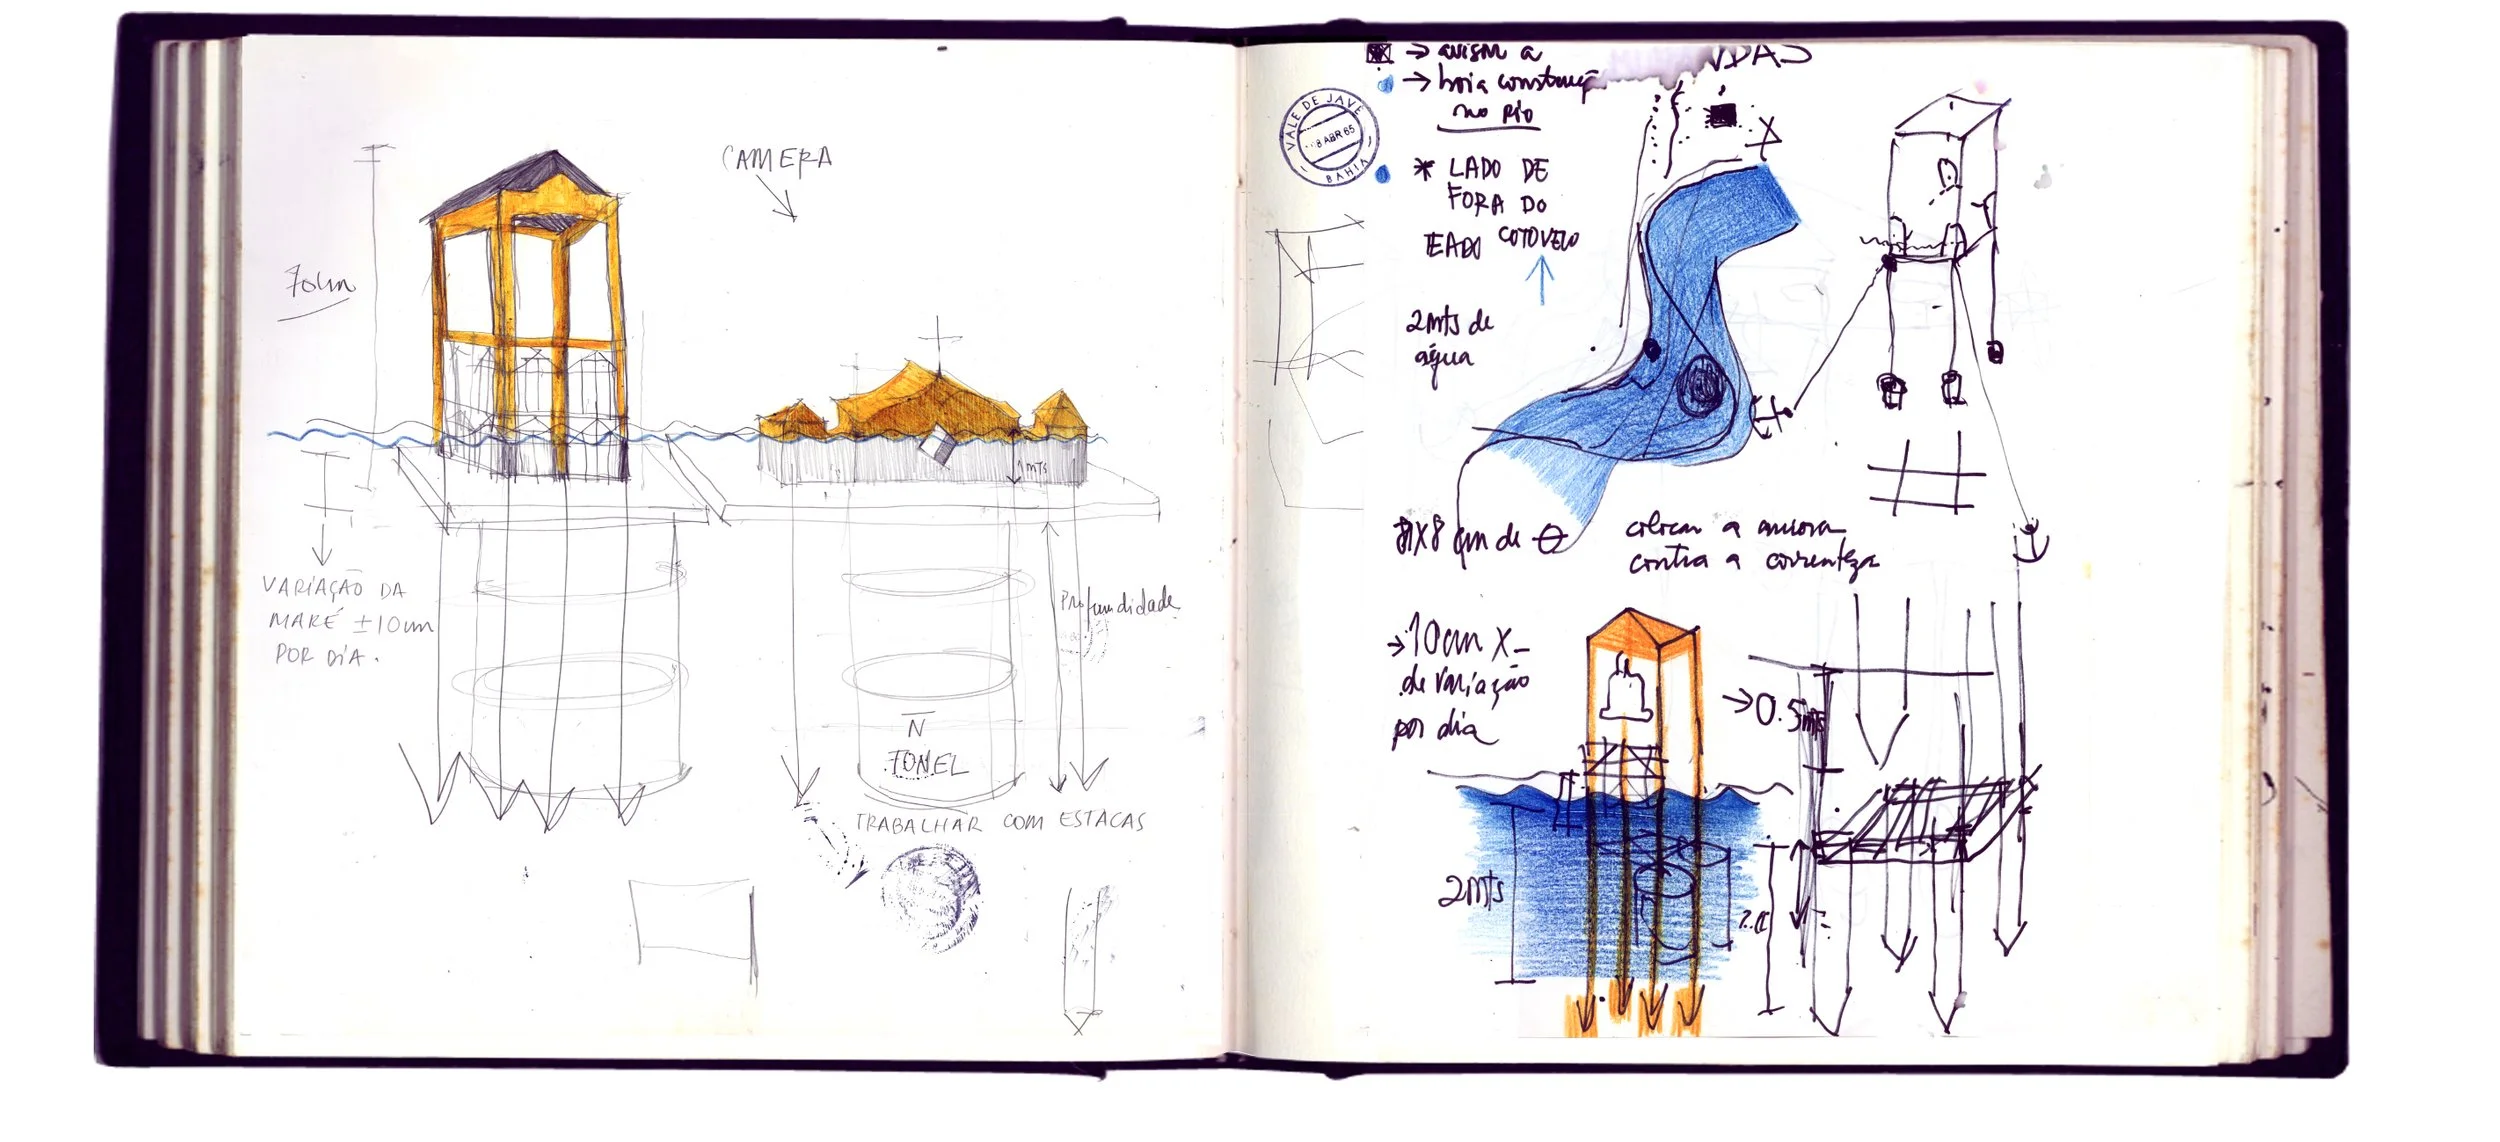 CAMERA
70cm
1mts
VARIAÇÃO DA
MARÉ ±10cm
POR DIA.
Profundidade
N
TONEL
TRABALHAR COM ESTACAS
→ avism a
→ boia construç
no rio
VALE DE JAVÉ
8 ABR 65
BAHIA
* LADO DE
FORA DO
COTOVELO
2mts de
água
colocar a ancora
contra a correnteza
→10cm X
de variação
por dia
→0.5mts
2mts